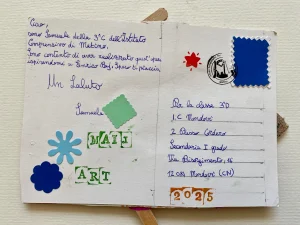 Ciao,
sono Samuele della 3°C dell'Istituto
Comprensivo di Matino.
Sono contento di aver realizzato quest'opera
ispirandomi a Enrico Baj. Spero ti piaccia
Un Saluto
Samuele
MAIL
ART
Per la classe 3D
I.C Mondovì
2 Piazza
Secondaria I grado
Via Risorgimento, 16
12084 Mondovì (CN)
2025